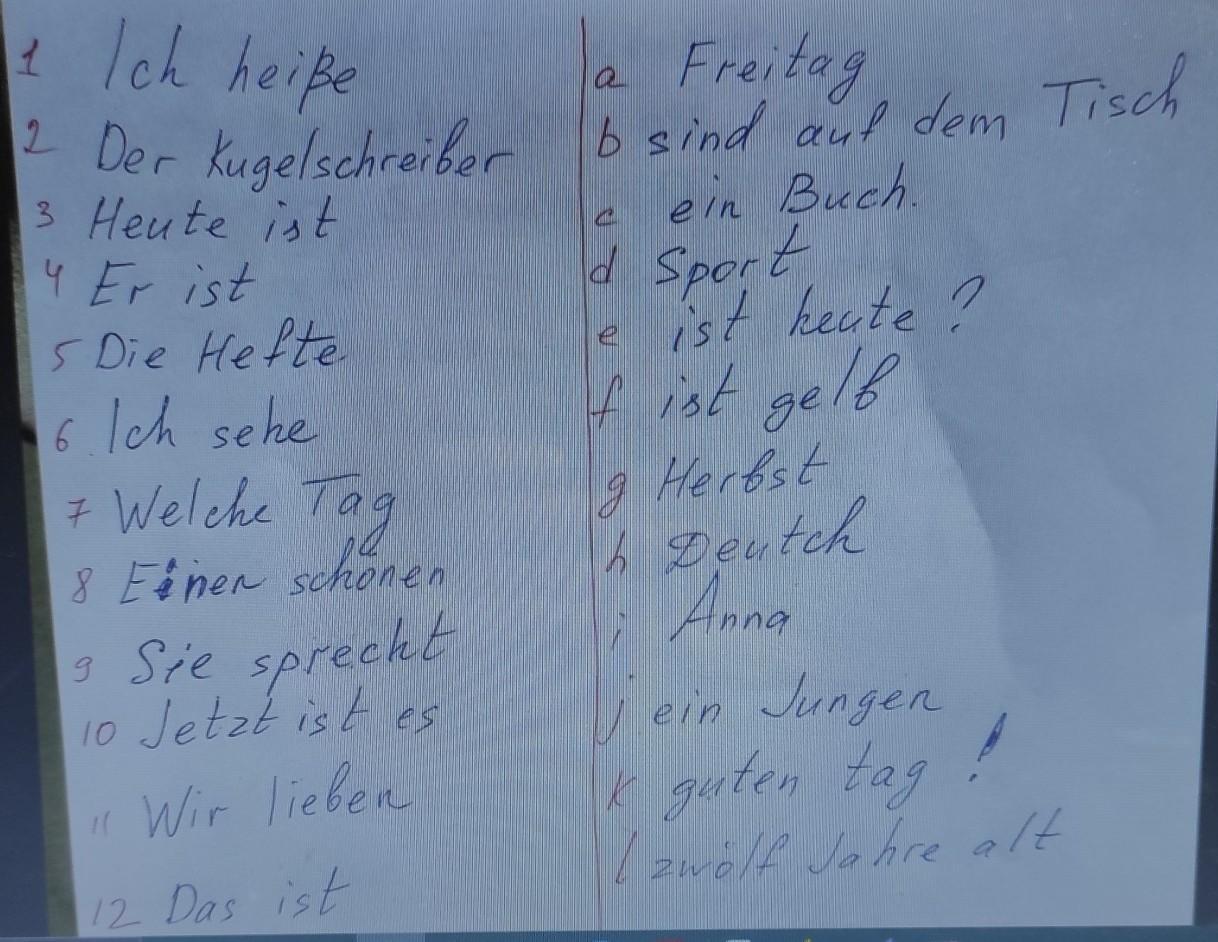 1 Ich heiße
2 Der Kugelschreiber
3 Heute ist
4 Er ist
5 Die Hefte
6 Ich sehe
7 Welche Tag
8 Einen schönen
9 Sie sprecht
10 Jetzt ist es
11 Wir lieben
12 Das ist
a Freitag
b sind auf dem Tisch
c ein Buch.
d Sport
e ist heute?
f ist gelb
g Herbst
h Deutch
i Anna
j ein Jungen
k guten tag!
l zwölf Jahre alt